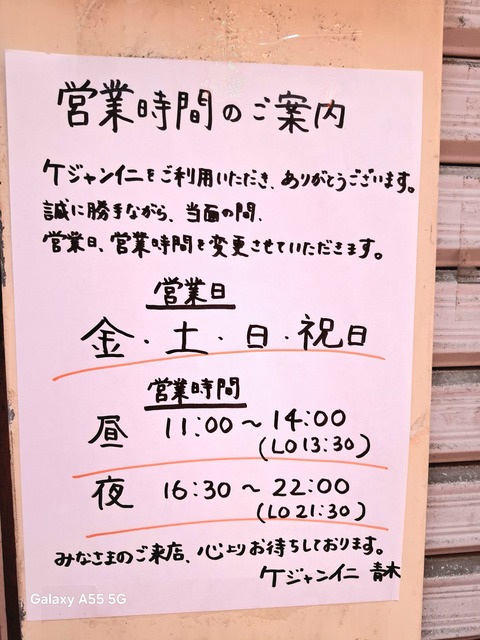 営業時間のご案内
ケジャンイニをご利用いただき、ありがとうございます。
誠に勝手ながら、当面の間、
営業日、営業時間を変更させていただきます。
営業日
金・土・日・祝日
営業時間
昼 11:00～14:00
(LO13:30)
夜 16:30～22:00
(LO21:30)
みなさまのご来店、心よりお待ちしております。
ケジャンイニ 青木
Galaxy A55 5G